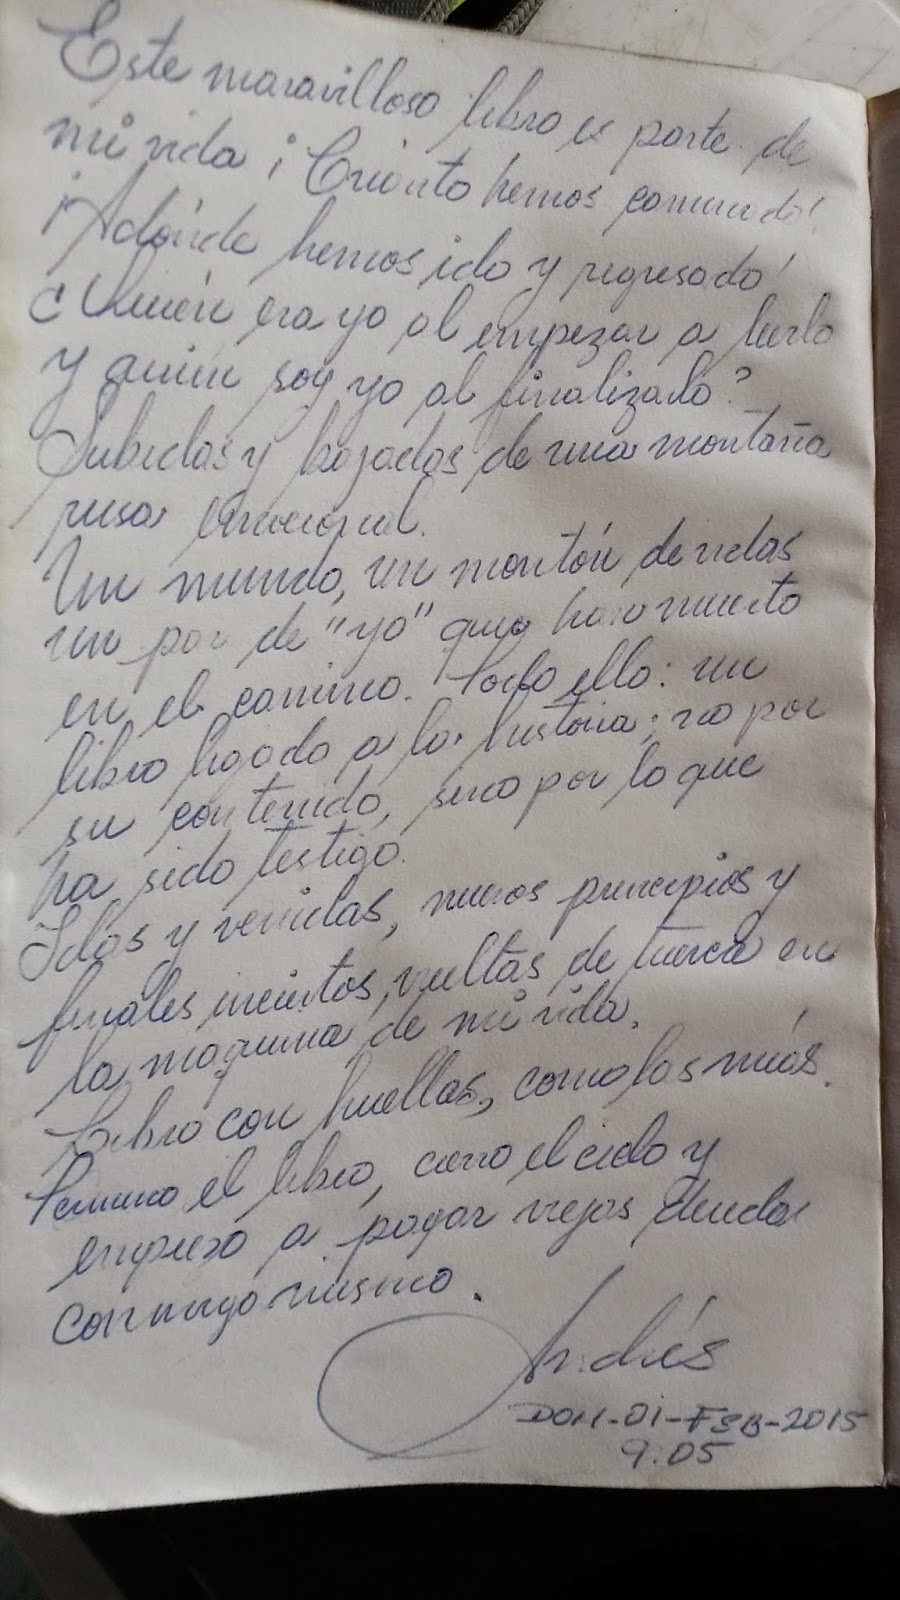 Este maravilloso libro es parte de
mi vida ¡Cuánto hemos caminado!
¡Adónde hemos ido y regresado!
¿Quién era yo al empezar a leerlo
y quién soy yo al finalizarlo?
Subidas y bajadas de una montaña
rusa emocional.
Un mundo, un montón de vidas
un par de "yo" que han muerto
en el camino. Todo ello: un
libro ligado a la historia; no por
su contenido, sino por lo que
ha sido testigo.
Idas y venidas, nuevos principios y
finales inciertos, vueltas de tuerca en
la maquina de mi vida.
Libro con huellas, como las mías.
Termino el libro, cierro el ciclo y
empiezo a pagar viejas deudas
conmigo mismo.
Andrés
DOM-01-FEB-2015
9:05